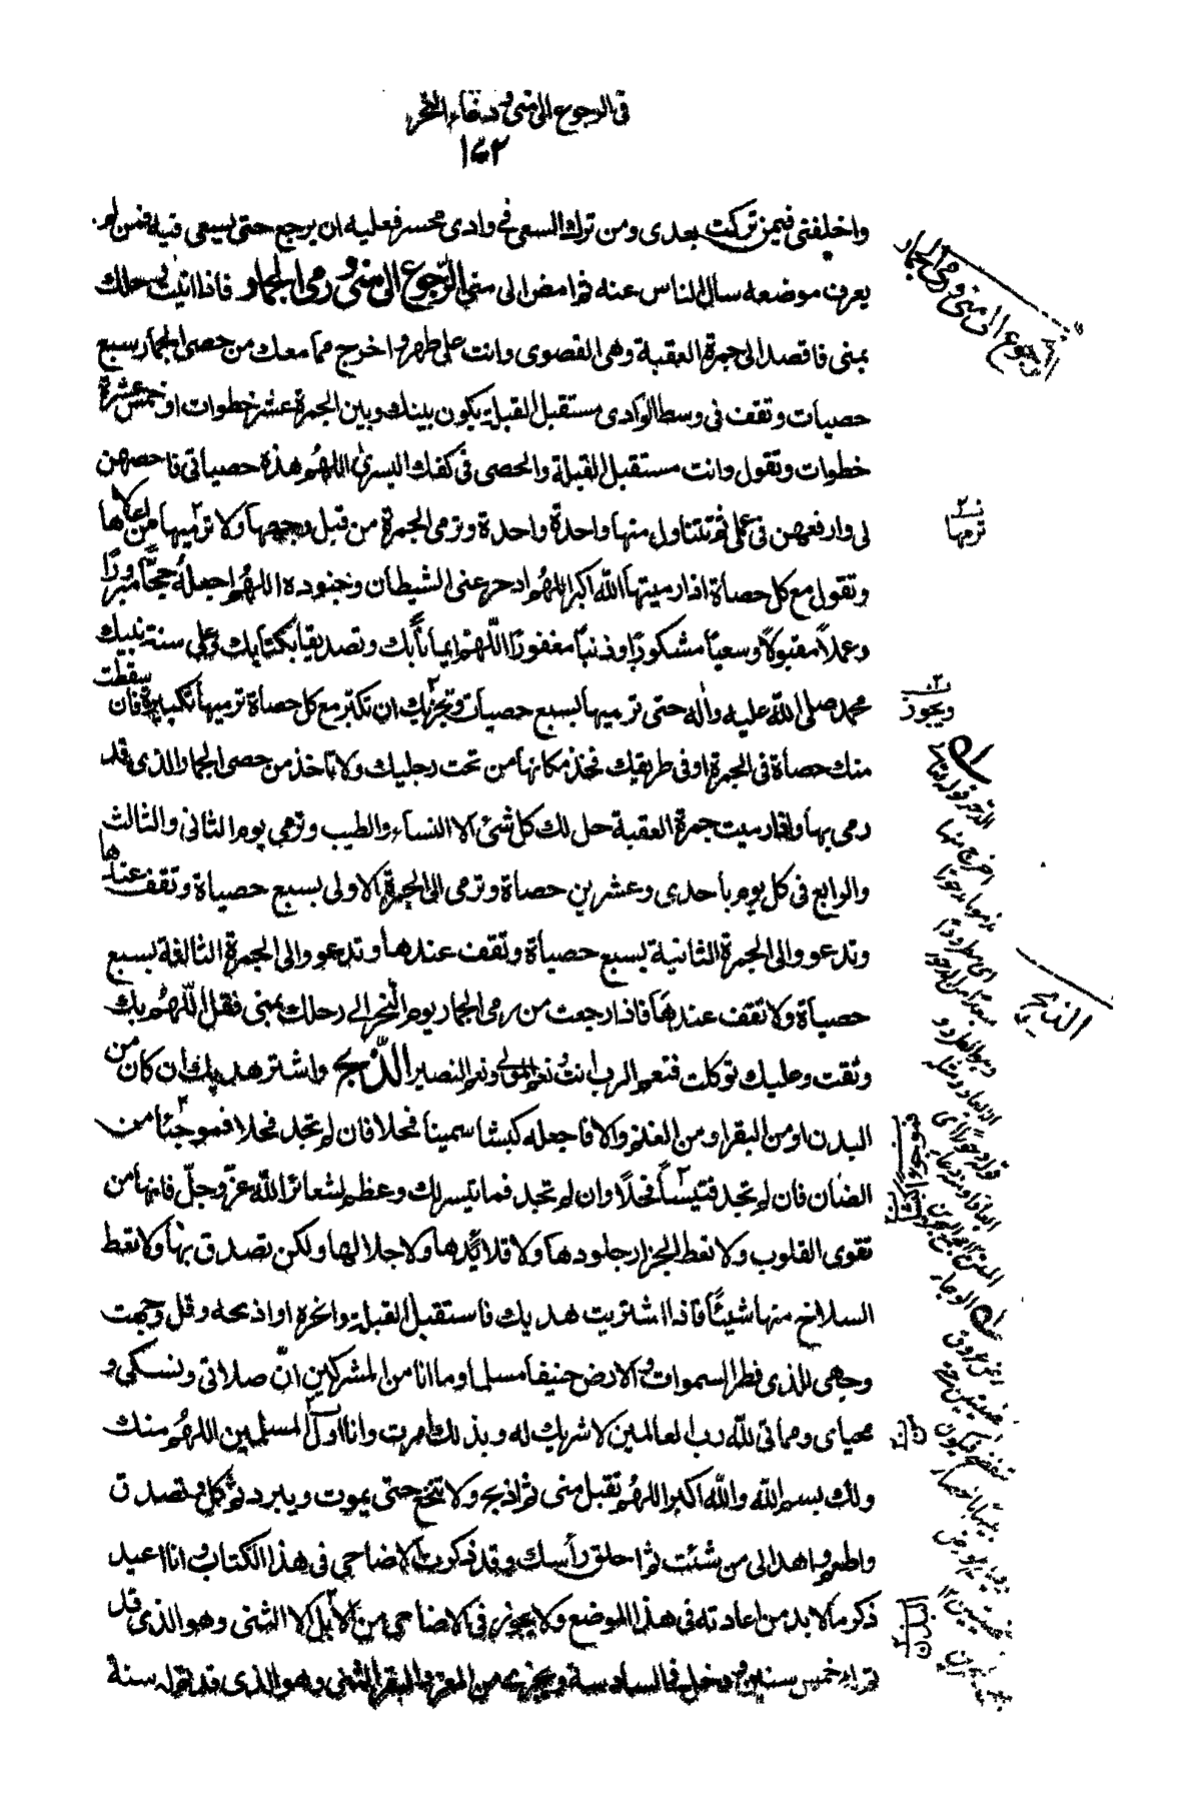 في الرجوع الى منى و دعاء النحر
١٧٢
واخلفني فيمن تركت بعدى ومن ترك السعى في وادى محسر فعليه ان يرجع حتى يسعى فيه فمن لم
يعرف موضعه سأل الناس عنه ثم امض الى منى الرجوع الى منى و رمى الجمار فاذا اتيت رحلك
بمنى فاقصد الى جمرة العقبة وهى القصوى وانت على طهر واخرج مما معك من حصى الجمار سبع
حصيات وتقف في وسط الوادى مستقبل القبلة يكون بينك وبين الجمرة عشر خطوات او خمس عشرة
خطوات وتقول وانت مستقبل القبلة والحصى في كفك اليسرى اللهم هذه حصياتي فاحصهن
لي وارفعهن في عملي ثم تتناول منها واحدة واحدة وترمى الجمرة من قبل وجهها ولا ترميها من اعلاها
وتقول مع كل حصاة اذا رميتها الله اكبر اللهم ادحر عني الشيطان وجنوده اللهم اجعله حجاً مبروراً
وعملاً مقبولاً وسعياً مشكوراً وذنباً مغفوراً اللهم ايماناً بك وتصديقاً بكتابك وعلى سنة نبيك
محمد صلى الله عليه واله حتى ترميها بسبع حصيات وتجزيك ان تكبر مع كل حصاة ترميها تكبيرة فان سقطت
منك حصاة في الجمرة او في طريقك فخذ مكانها من تحت رجليك ولا تاخذ من حصى الجمار الذي قد
رمى بها واذا رميت جمرة العقبة حل لك كل شئ الا النساء والطيب وترمي يوم الثاني والثالث
والرابع في كل يوم باحدى وعشرين حصاة وترمى الى الجمرة الاولى بسبع حصياة وتقف عندها
وتدعو والى الجمرة الثانية بسبع حصياة وتقف عندها وتدعو والى الجمرة الثالثة بسبع
حصياة ولا تقف عندها فاذا رجعت من رمى الجمار يوم النحر الى رحلك بمنى فقل اللهم بك
وثقت وعليك توكلت فنعم الرب انت ونعم المولى ونعم النصير الذبح واشتر هديك ان كان من
البدن او من البقر او من الغنم والا فاجعله كبشا سمينا فحلا فان لم تجد فحلا فموجئا من
الضان فان لم تجد فتيساً فحلاً وان لم تجد فما تيسر لك وعظم لشعائر الله عز وجل فانها من
تقوى القلوب ولا تعط الجزار جلودها ولا قلائدها ولا جلالها ولكن تصدق بها ولا تعط
السلاخ منها شيئاً فاذا اشتريت هديك فاستقبل القبلة وانحره او اذبحه وقل وجهت
وجهى للذى فطر السموات والارض حنيفاً مسلما وما انا من المشركين ان صلاتي ونسكي و
محياى ومماتي لله رب العالمين لا شريك له وبذلك امرت وانا اول المسلمين اللهم منك
ولك بسم الله والله اكبر اللهم تقبل مني ثم اذبح ولا تنخع حتى يموت ويبرد ثم كل وتصدق
واطعم واهد الى من شئت ثم احلق رأسك وقد ذكرت الاضاحي في هذا الكتاب وانا اعيد
ذكر ما لا بد من اعادته في هذا الموضع ولا يجوز في الاضاحي من الابل الا الثنى وهو الذى قد
تم له خمس سنين ودخل في السادسة ويجزي من المعز والبقر الثني وهو الذى قد تم له سنة
الرجوع الى منى و رمى الجمار
ترمها
ويجوز
الذبح